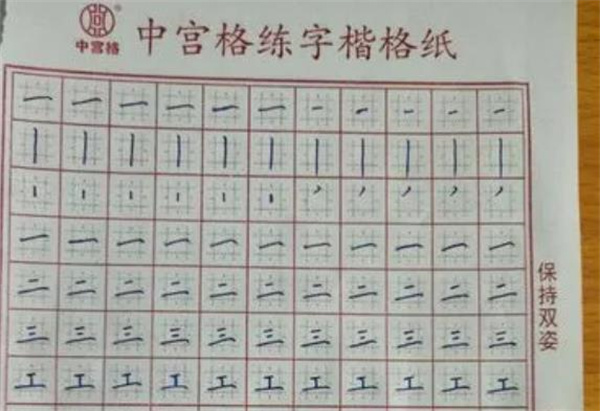 中宫格
中宫格练字楷格纸
一一一一一一一一一一一
丨丨丨丨丨丨丨丨丨丨丨
丨丨丨丨丨丨丿丿丿丿丿
一一一一一一一一一一一
二二二二二二二二二二二
三三三三三三三三三三三
工工工工工工工工工工工
保持双姿